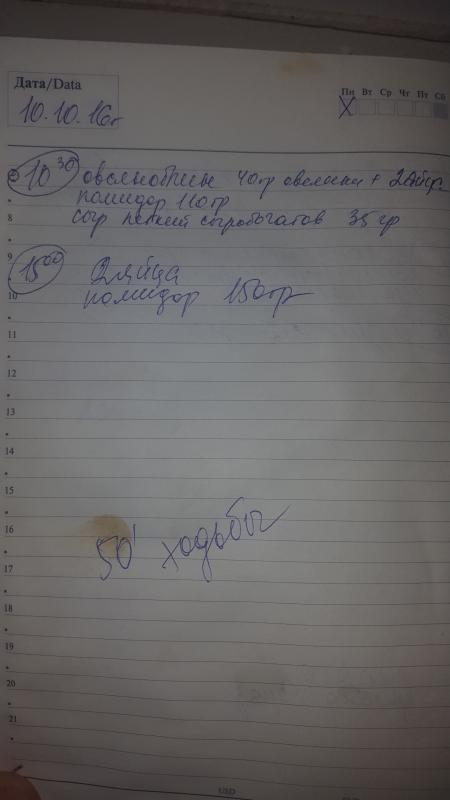 Дата/Data
10.10.16г
Пн Вт Ср Чт Пт Сб
10 30 овсяноблин 40гр овсянки + 2яйца
помидор 110гр
8
сыр легкий сыробогатов 35 гр
9
15 00 2 яйца
10
помидор 150гр
11
12
13
14
15
16
50' ходьбы
17
18
19
20
21
USD